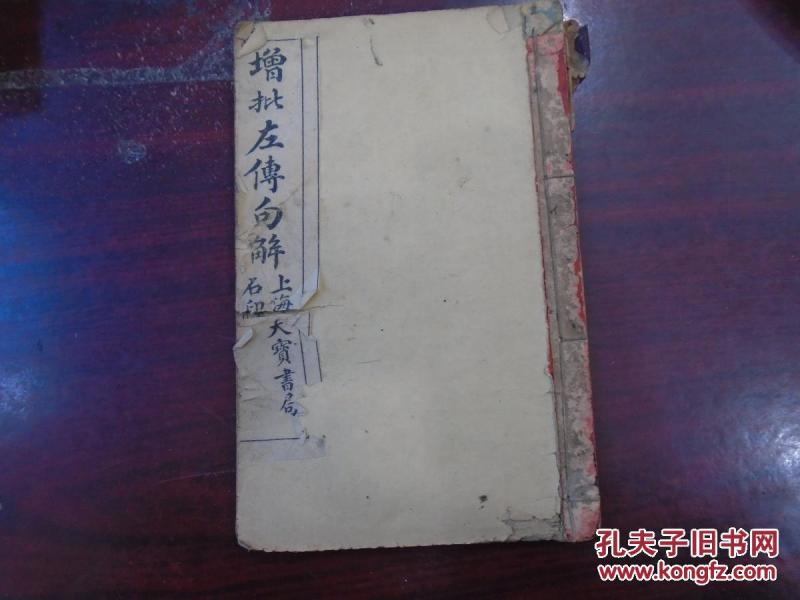 增批左傳句解
上海大寶書局
石印
孔夫子旧书网
www.kongfz.com